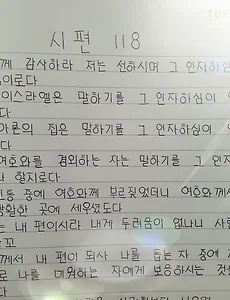 시 편 118
께 감사하라 저는 선하시며 그 인자하심
이로다
이스라엘은 말하기를 그 인자하심이
다
아론의 집은 말하기를 그 인자하심이 영
다
여호와를 경외하는 자는 말하기를 그 인자
다 할지로다
고통 중에 여호와께 부르짖었더니 여호와께서
광활한 곳에 세우셨도다
는 내 편이시라 내게 두려움이 없나니 사람
꼬
께서 내 편이 되사 나를 돕는 자 중에
로 나를 미워하는 자에게 보응하시는 것을
다